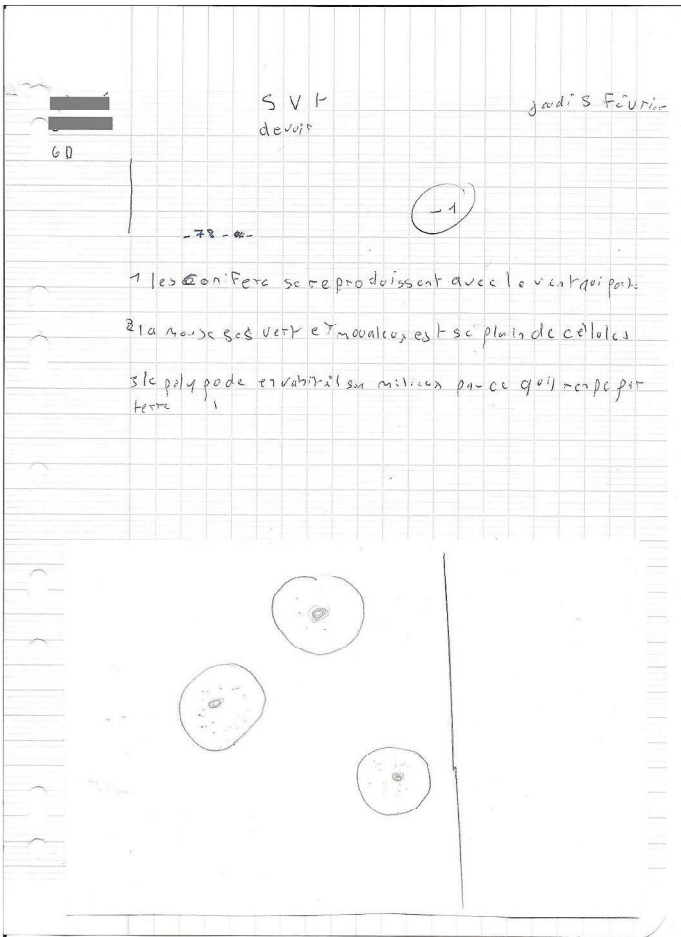 S V t
devoir
jeudi 5 Février
6D
-1
-78-
1 les Conifere se reproduissent avec le vent qui porte
2 la mousse est vert et est se plain de cellules
3 le polypode envahit il son milieux par ce qu'il rempe par
terre